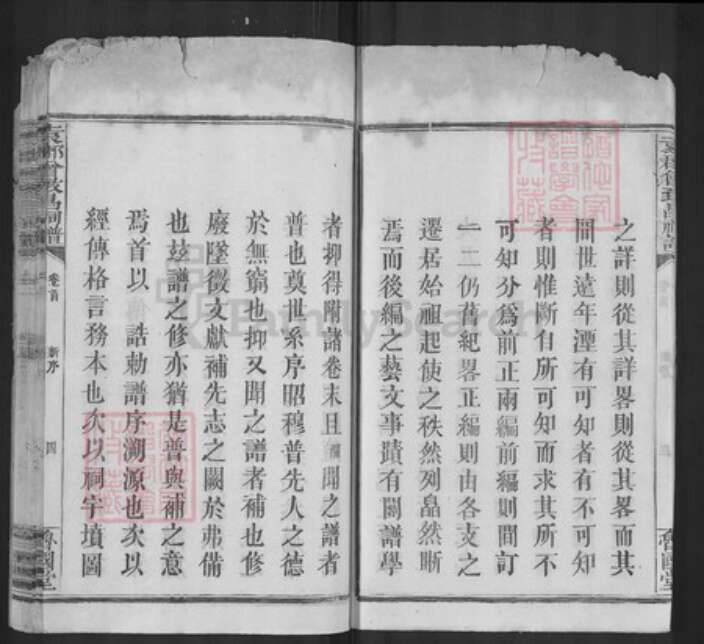 之詳則從其詳畧則從其畧而其
間世遠年湮有可知者有不可知
者則惟斷自所可知而求其所不
可知分爲前正兩編前編則間訂
一二仍舊紀畧正編則由各支之
遷居始祖起使之秩然列晶然晰
焉而後編之藝文事蹟有關譜學
者抑得附諸卷末且聞之譜者
普也奠世系序昭穆普先人之德
於無窮也抑又聞之譜者補也修
廢墜徵文獻補先志之闕於弗備
也玆譜之修亦猶是普與補之意
焉首以誥勅譜序溯源也次以
經傳格言務本也次以祠宇墳圖
卷首
新序
四
魯國堂
FamilySearch